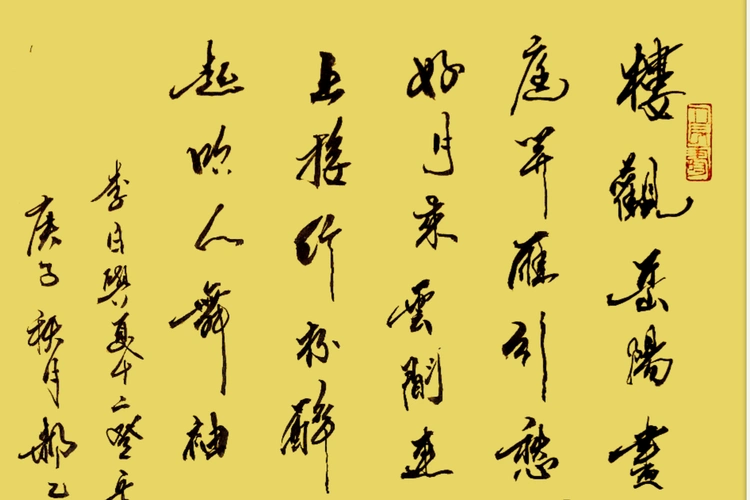 樓觀岳陽盡
庭开雁引愁
好月來雲間連
上接行杯醉
起吹人舞袖
李白與夏十二登岳
庚子秋月郝乙